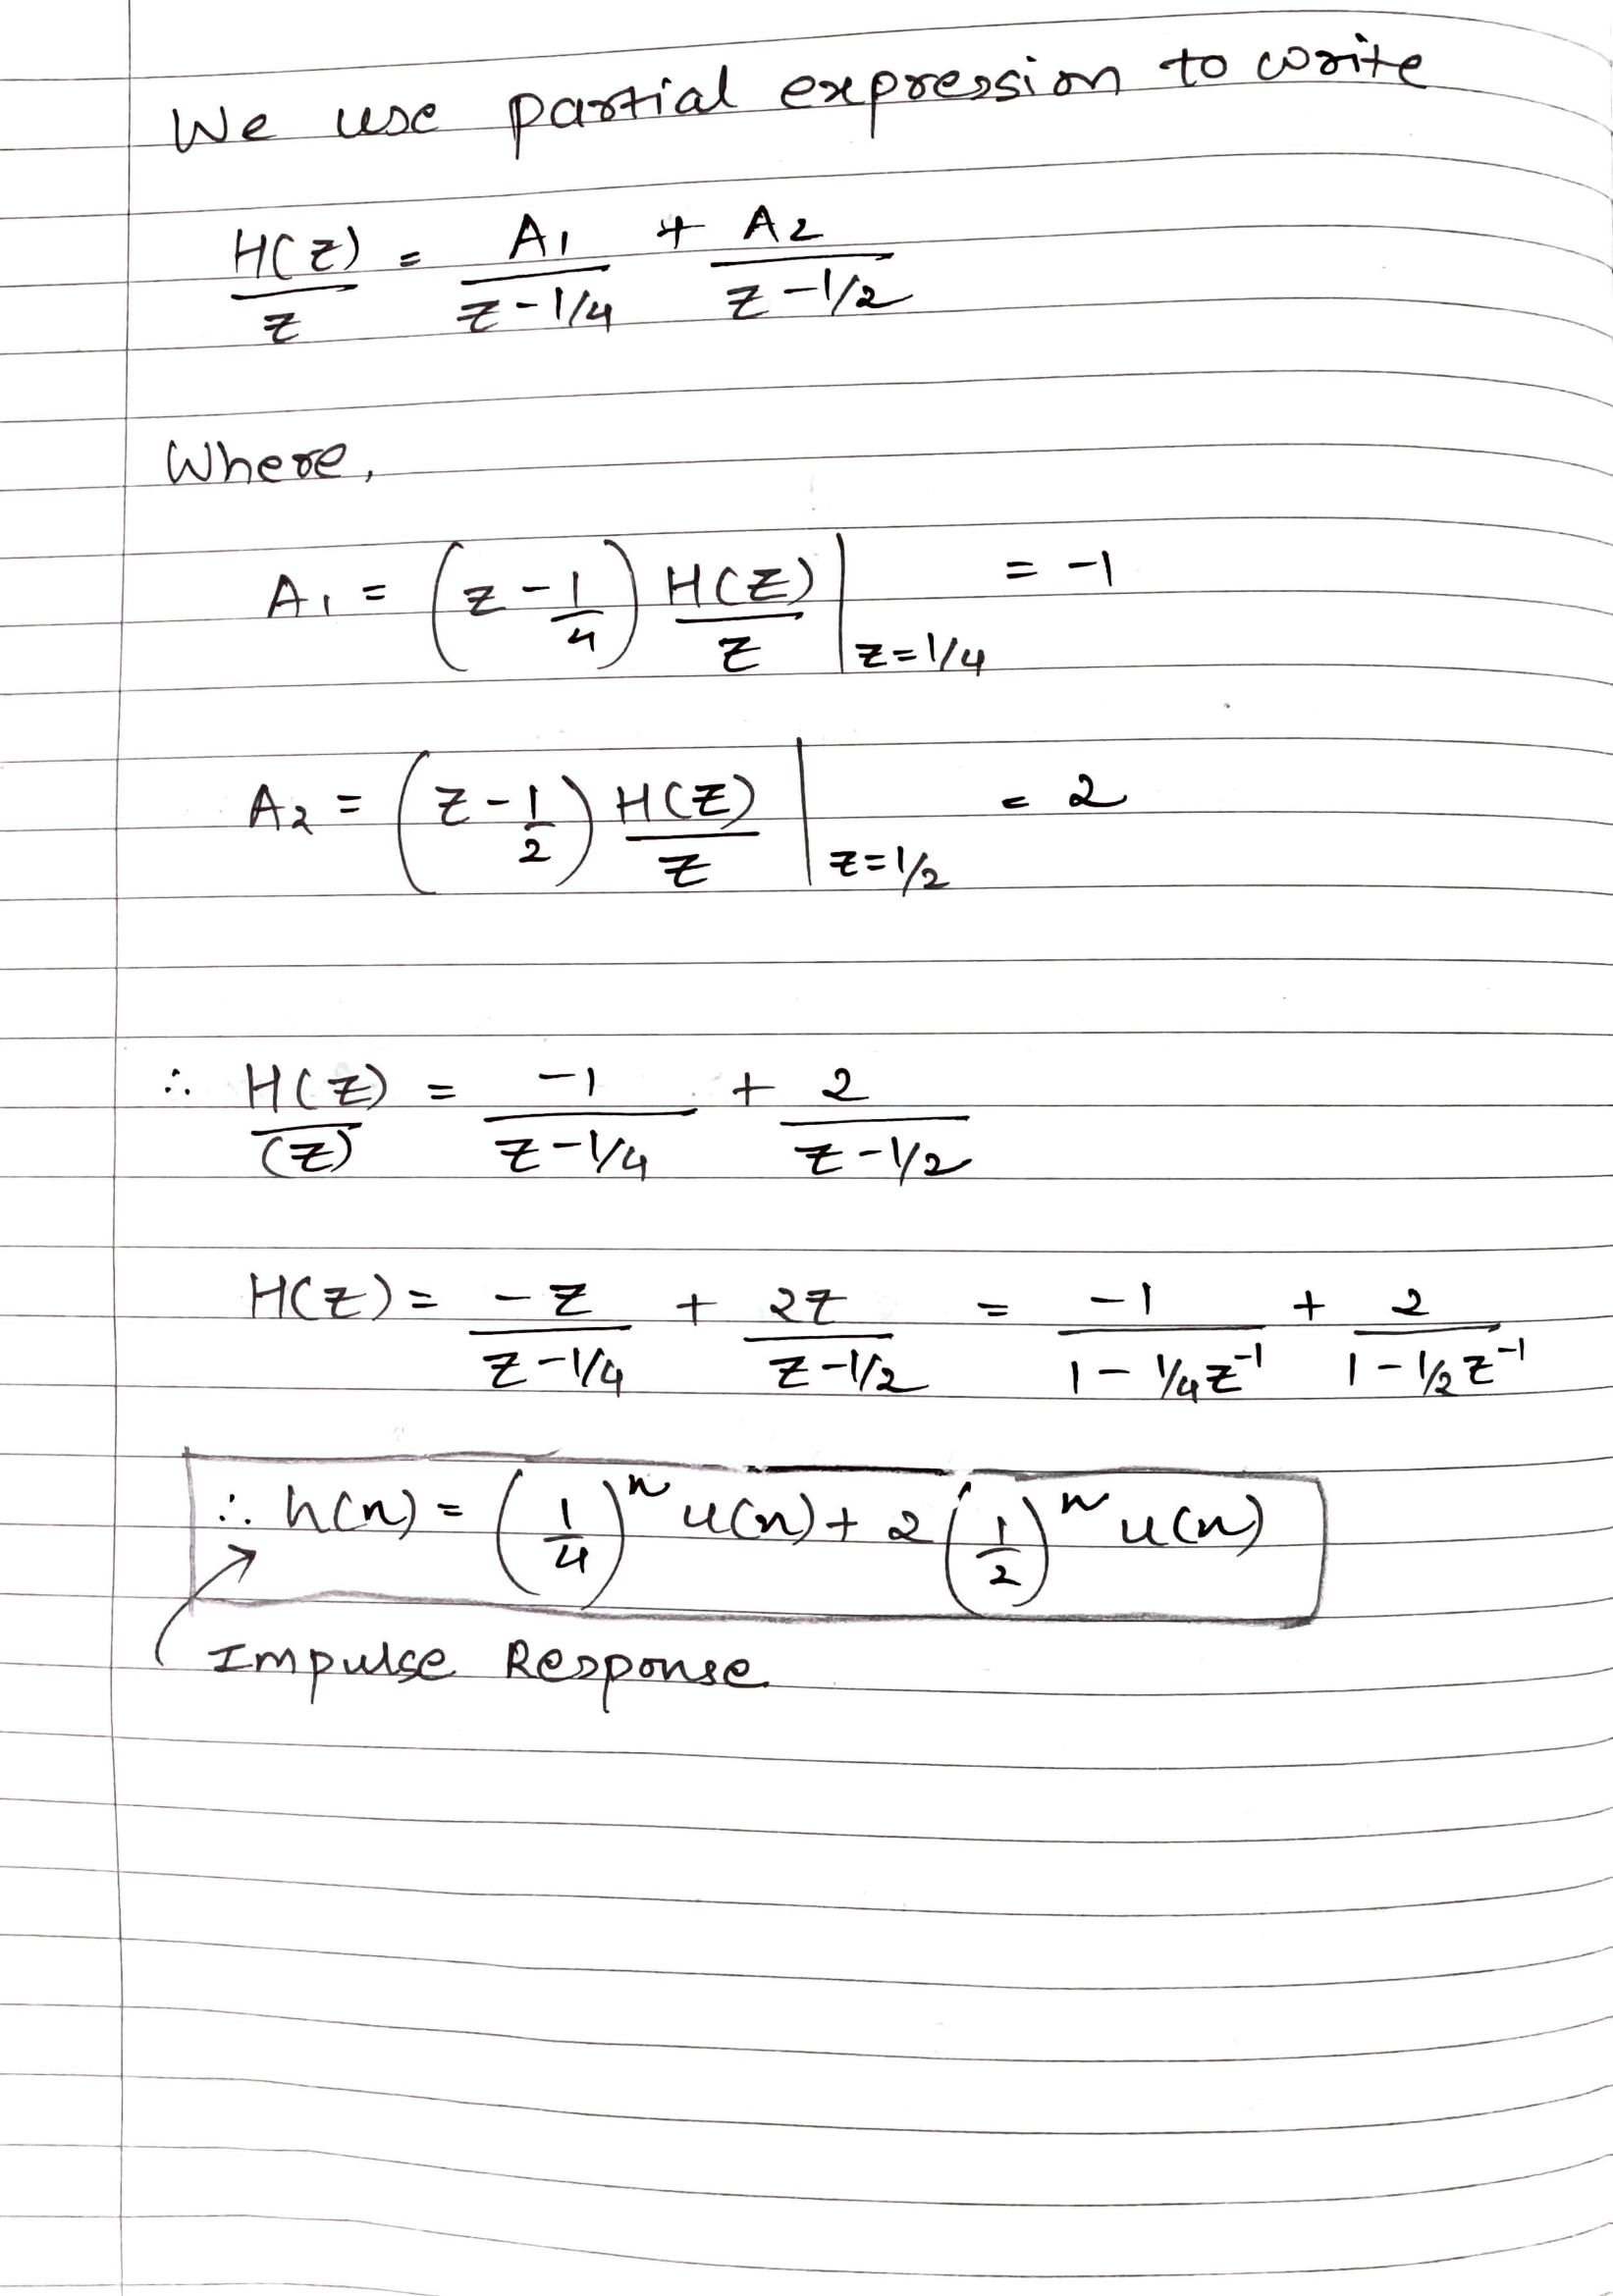 We use partial expression to write
H(Z)/Z = A1/(Z-1/4) + A2/(Z-1/2)
Where,
A1 = (Z - 1/4) H(Z)/Z | Z=1/4 = -1
A2 = (Z - 1/2) H(Z)/Z | Z=1/2 = 2
∴ H(Z)/(Z) = -1/(Z-1/4) + 2/(Z-1/2)
H(Z) = -Z/(Z-1/4) + 2Z/(Z-1/2) = -1/(1-1/4Z^-1) + 2/(1-1/2Z^-1)
∴ h(n) = (1/4)^n u(n) + 2(1/2)^n u(n)
Impulse Response